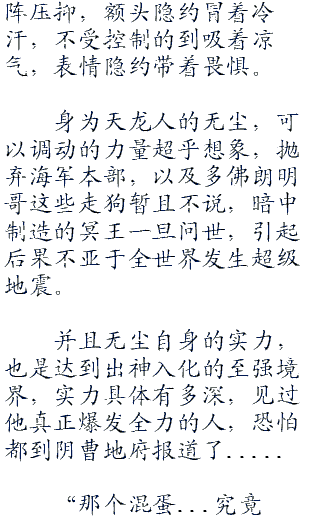 阵压抑，额头隐约冒着冷
汗，不受控制的到吸着凉
气，表情隐约带着畏惧。
身为天龙人的无尘，可
以调动的力量超乎想象，抛
弃海军本部，以及多佛朗明
哥这些走狗暂且不说，暗中
制造的冥王一旦问世，引起
后果不亚于全世界发生超级
地震。
并且无尘自身的实力，
也是达到出神入化的至强境
界，实力具体有多深，见过
他真正爆发全力的人，恐怕
都到阴曹地府报道了.....
“那个混蛋...究竟